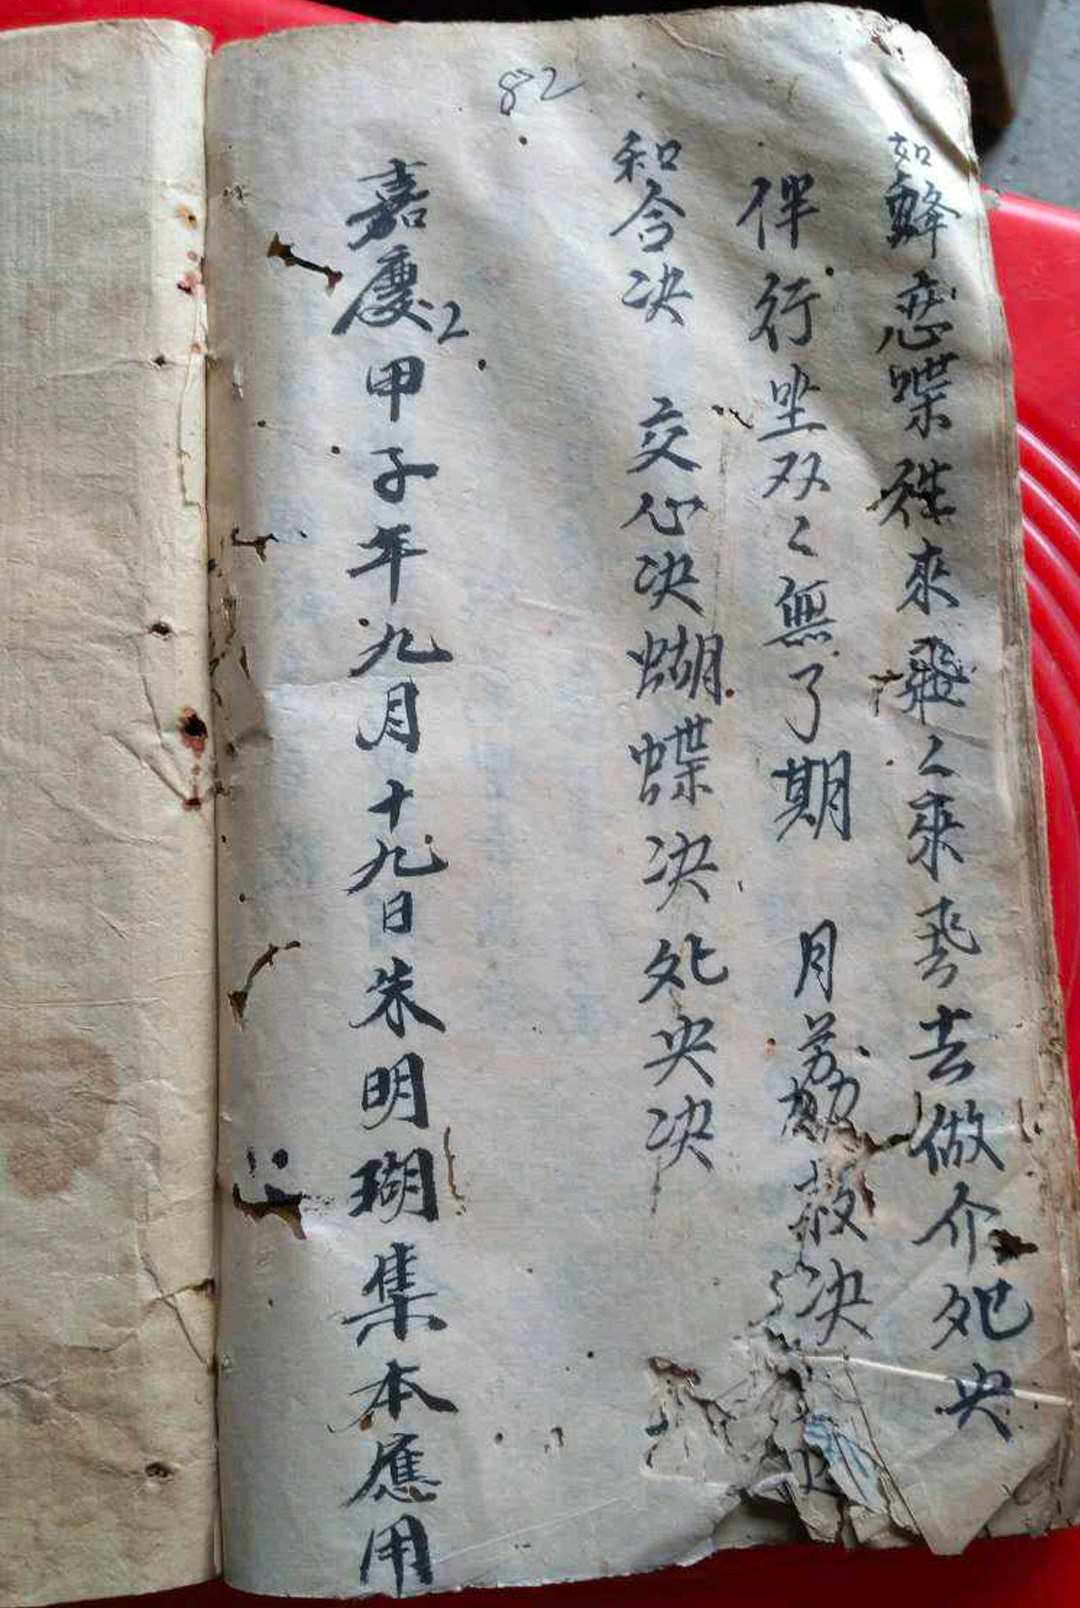 82
如蜂恋蝶往來飛〻來飛去做介夗央
伴行坐双〻無了期 月 敕决
和合决 交心决蝴蝶决夗央决
嘉慶2甲子年九月十九日朱明瑚集本應用